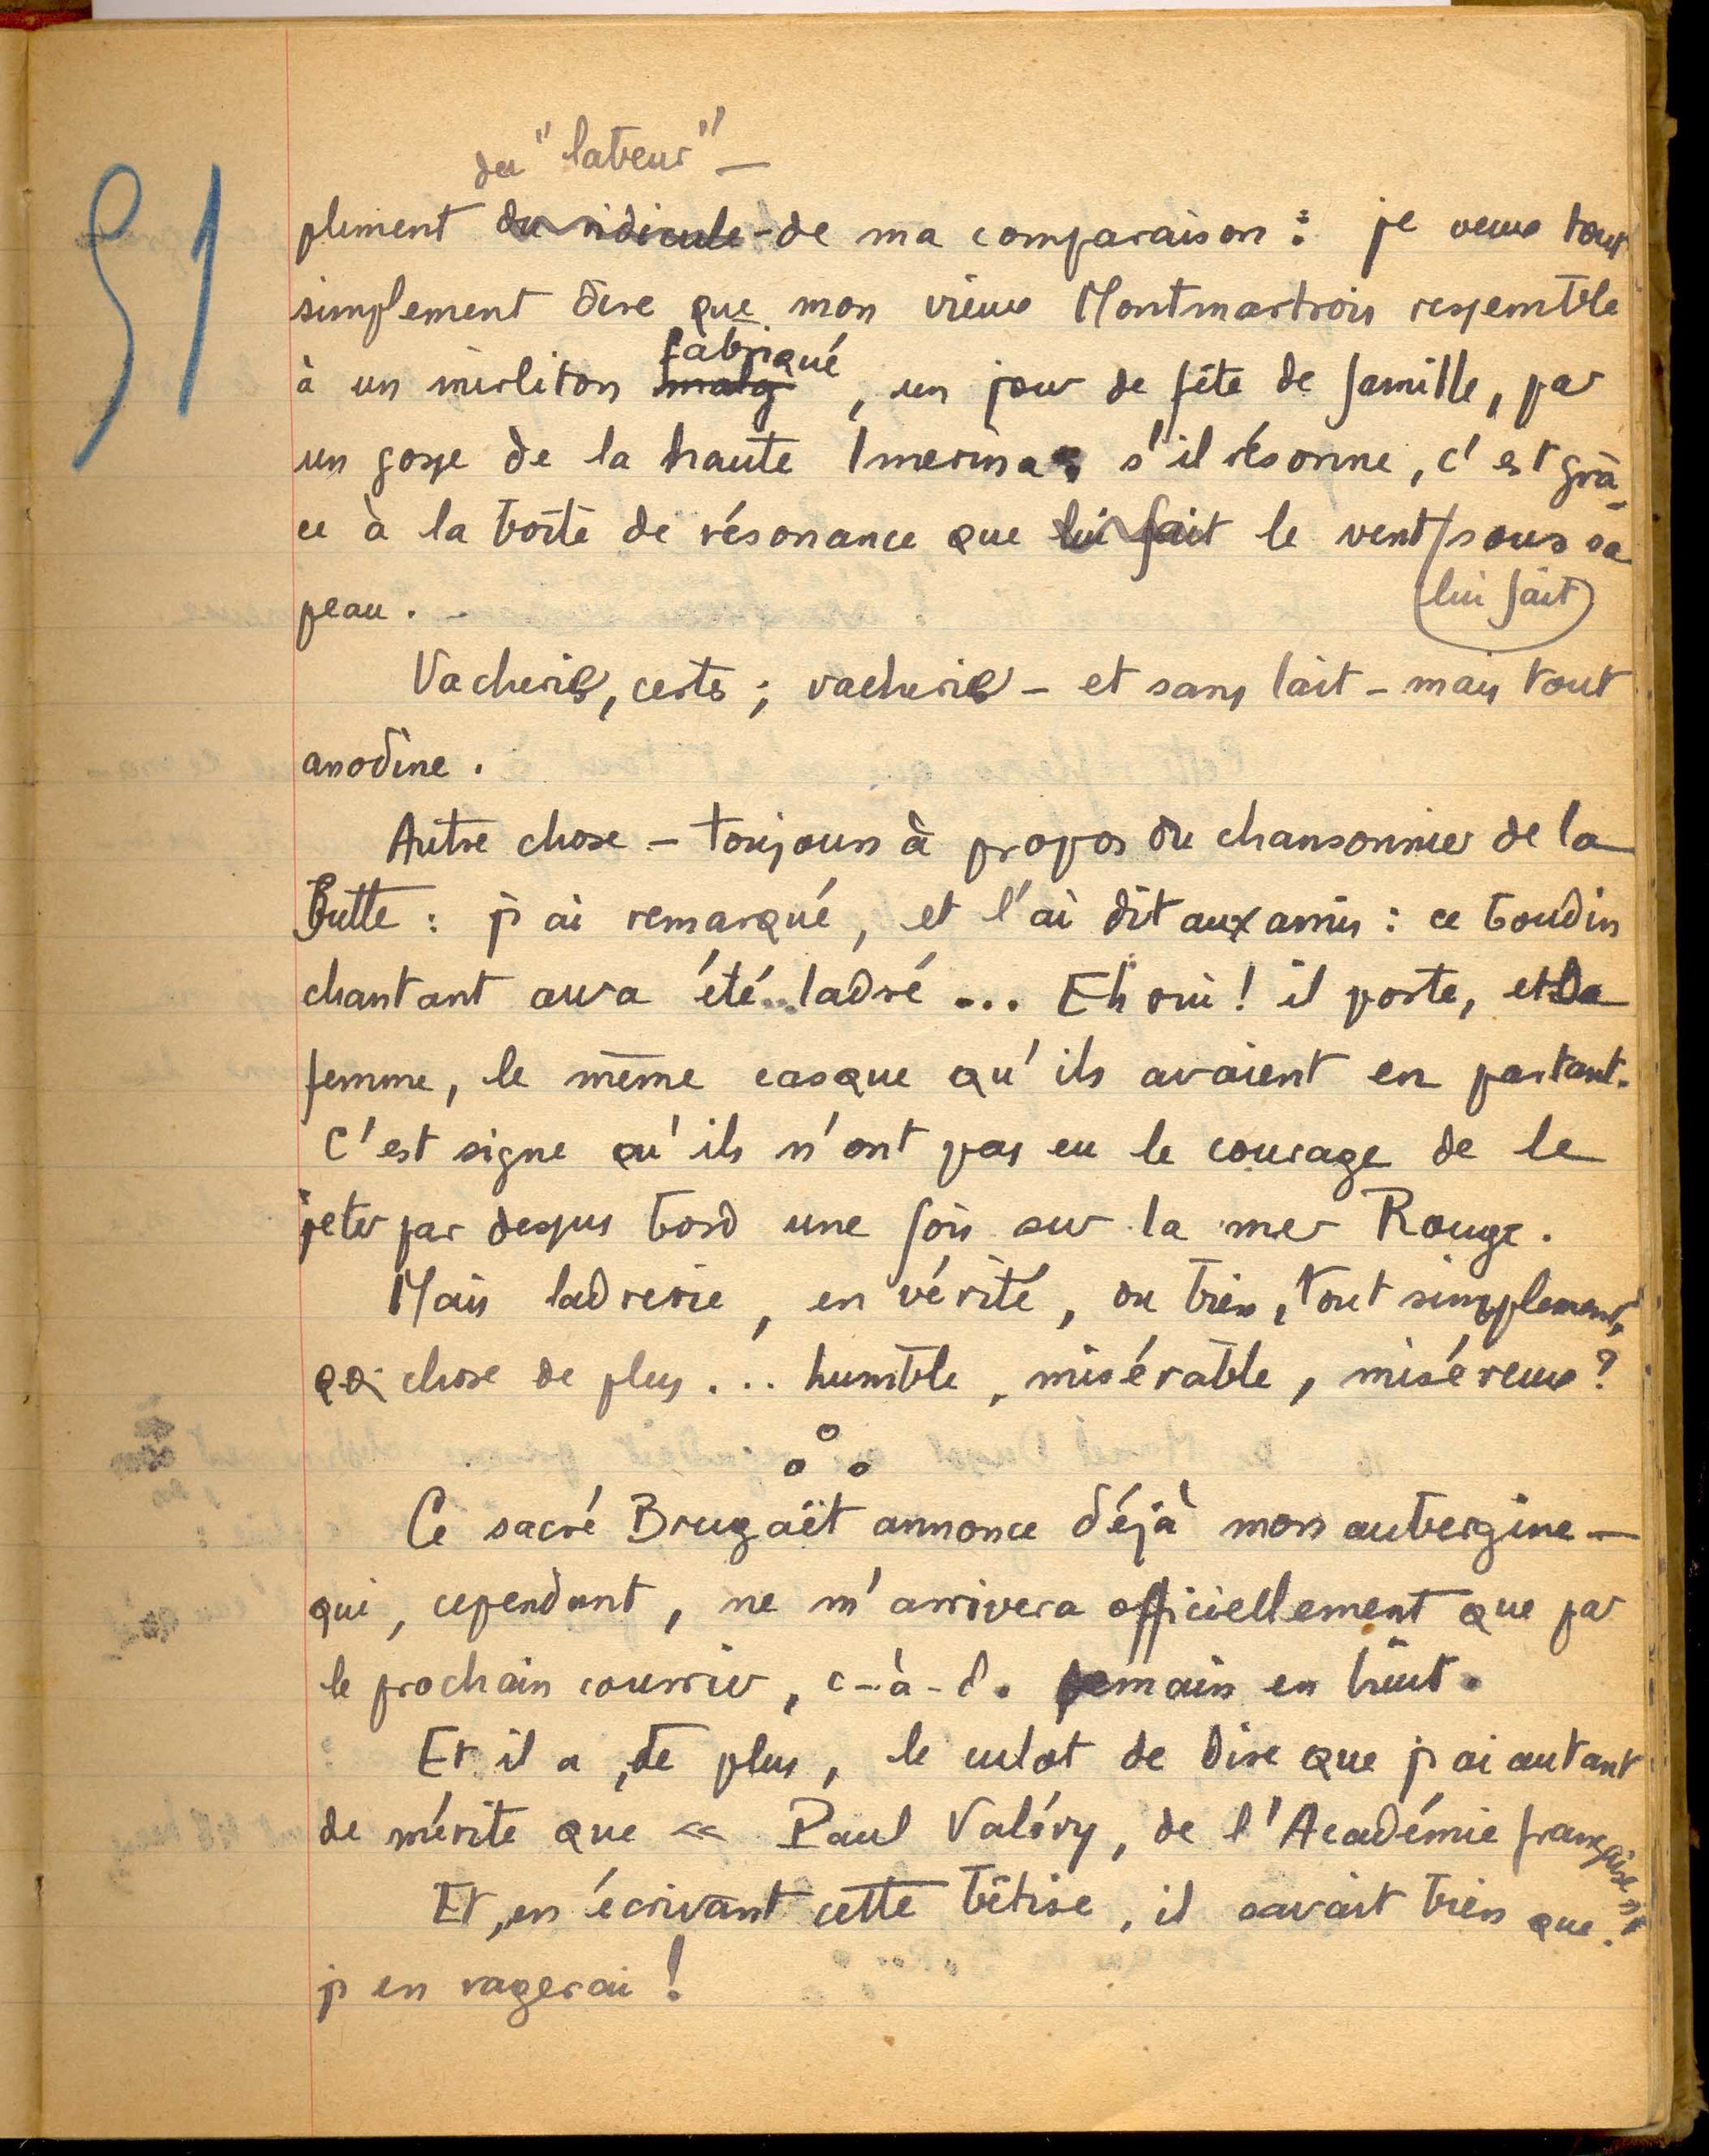 51
du "labeur" –
pliment du ridicule - de ma comparaison : je veux tout
simplement dire que mon vieux Montmartrois ressemble
fabriqué
à un mirliton malg , un jour de fête de famille, par
un gosse de la haute Imerina : s'il résonne, c'est grâ-
ce à la boîte de résonance que lui fait le vent / sous sa
peau . lui fait
Vacherie, certes ; vacherie – et sans lait – mais tout
anodine .
Autre chose – toujours à propos du chansonnier de la
Butte : j'ai remarqué, et l'ai dit aux amis : ce boudin
chantant aura été.. ladré ... Eh oui ! il porte, et sa
femme, le même casque qu'ils avaient en partant.
C'est signe qu'ils n'ont pas eu le courage de le
jeter par dessus bord une fois sur la mer Rouge .
Mais ladrerie, en vérité, ou bien, tout simplement,
qq. chose de plus ... humble, misérable, miséreux ?
° ° °
Ce sacré Brugaët annonce déjà mon aubergine –
qui, cependant, ne m'arrivera officiellement que par
le prochain courrier, c-à-d. demain en huit .
Et il a, de plus, le culot de dire que j'ai autant
de mérite que « Paul Valéry, de l'Académie française » !
Et, en écrivant cette bêtise, il savait bien que
j'en ragerai !